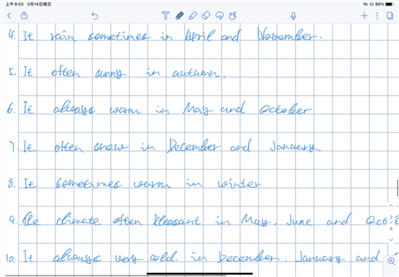 上午9:53 5月14日周日
4. It rain sometimes in April and November.
5. It often sunny in autumn.
6. It always warm in May and October
7. It often snow in December and January
8. It sometimes warm in winter
9. The climate often pleasant in May, June and Oct
10. It always very cold in December, January and